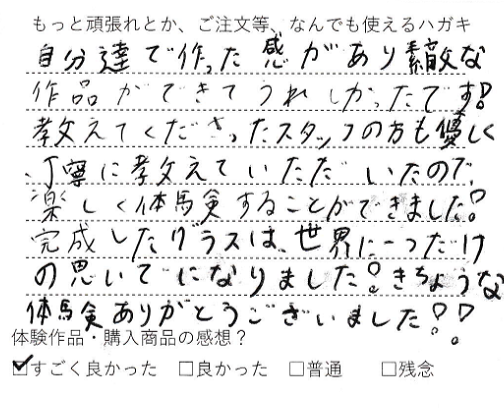 もっと頑張れとか、ご注文等、なんでも使えるハガキ
自分達で作った感があり素敵な
作品ができてうれしかったです!
教えてくださったスタッフの方も優しく
、丁寧に教えていただいたので、
楽しく体験することができました!
完成したグラスは、世界に一つだけ
の思いでになりました!きちょうな
体験ありがとうございました!!
体験作品・購入商品の感想?
☑すごく良かった □良かった □普通 □残念